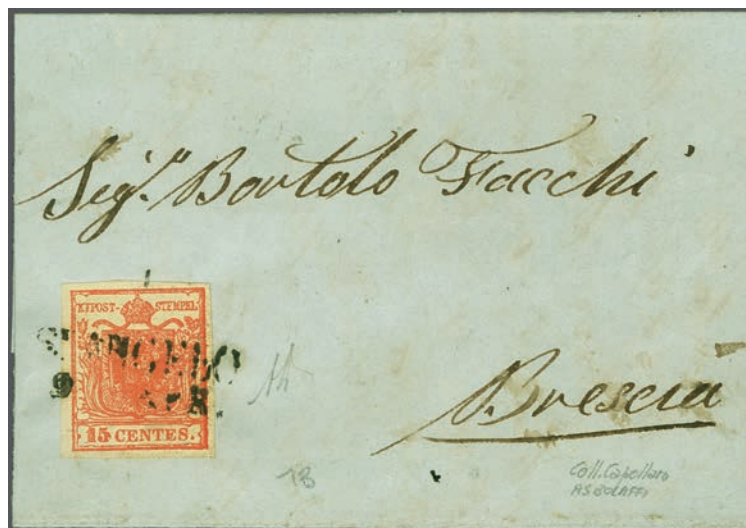 Sig.r Bortolo Facchi
KK POST-STEMPEL
S. ANGELO
9 APR.
15 CENTES.
Brescia
Coll. Capellaro
AS BOLAFFI